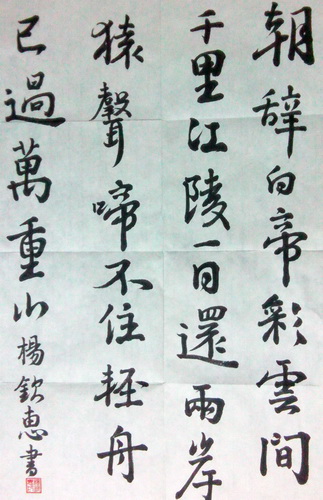 朝辭白帝彩雲間
千里江陵一日還兩岸
猿聲啼不住輕舟
已過萬重山楊欽惠書